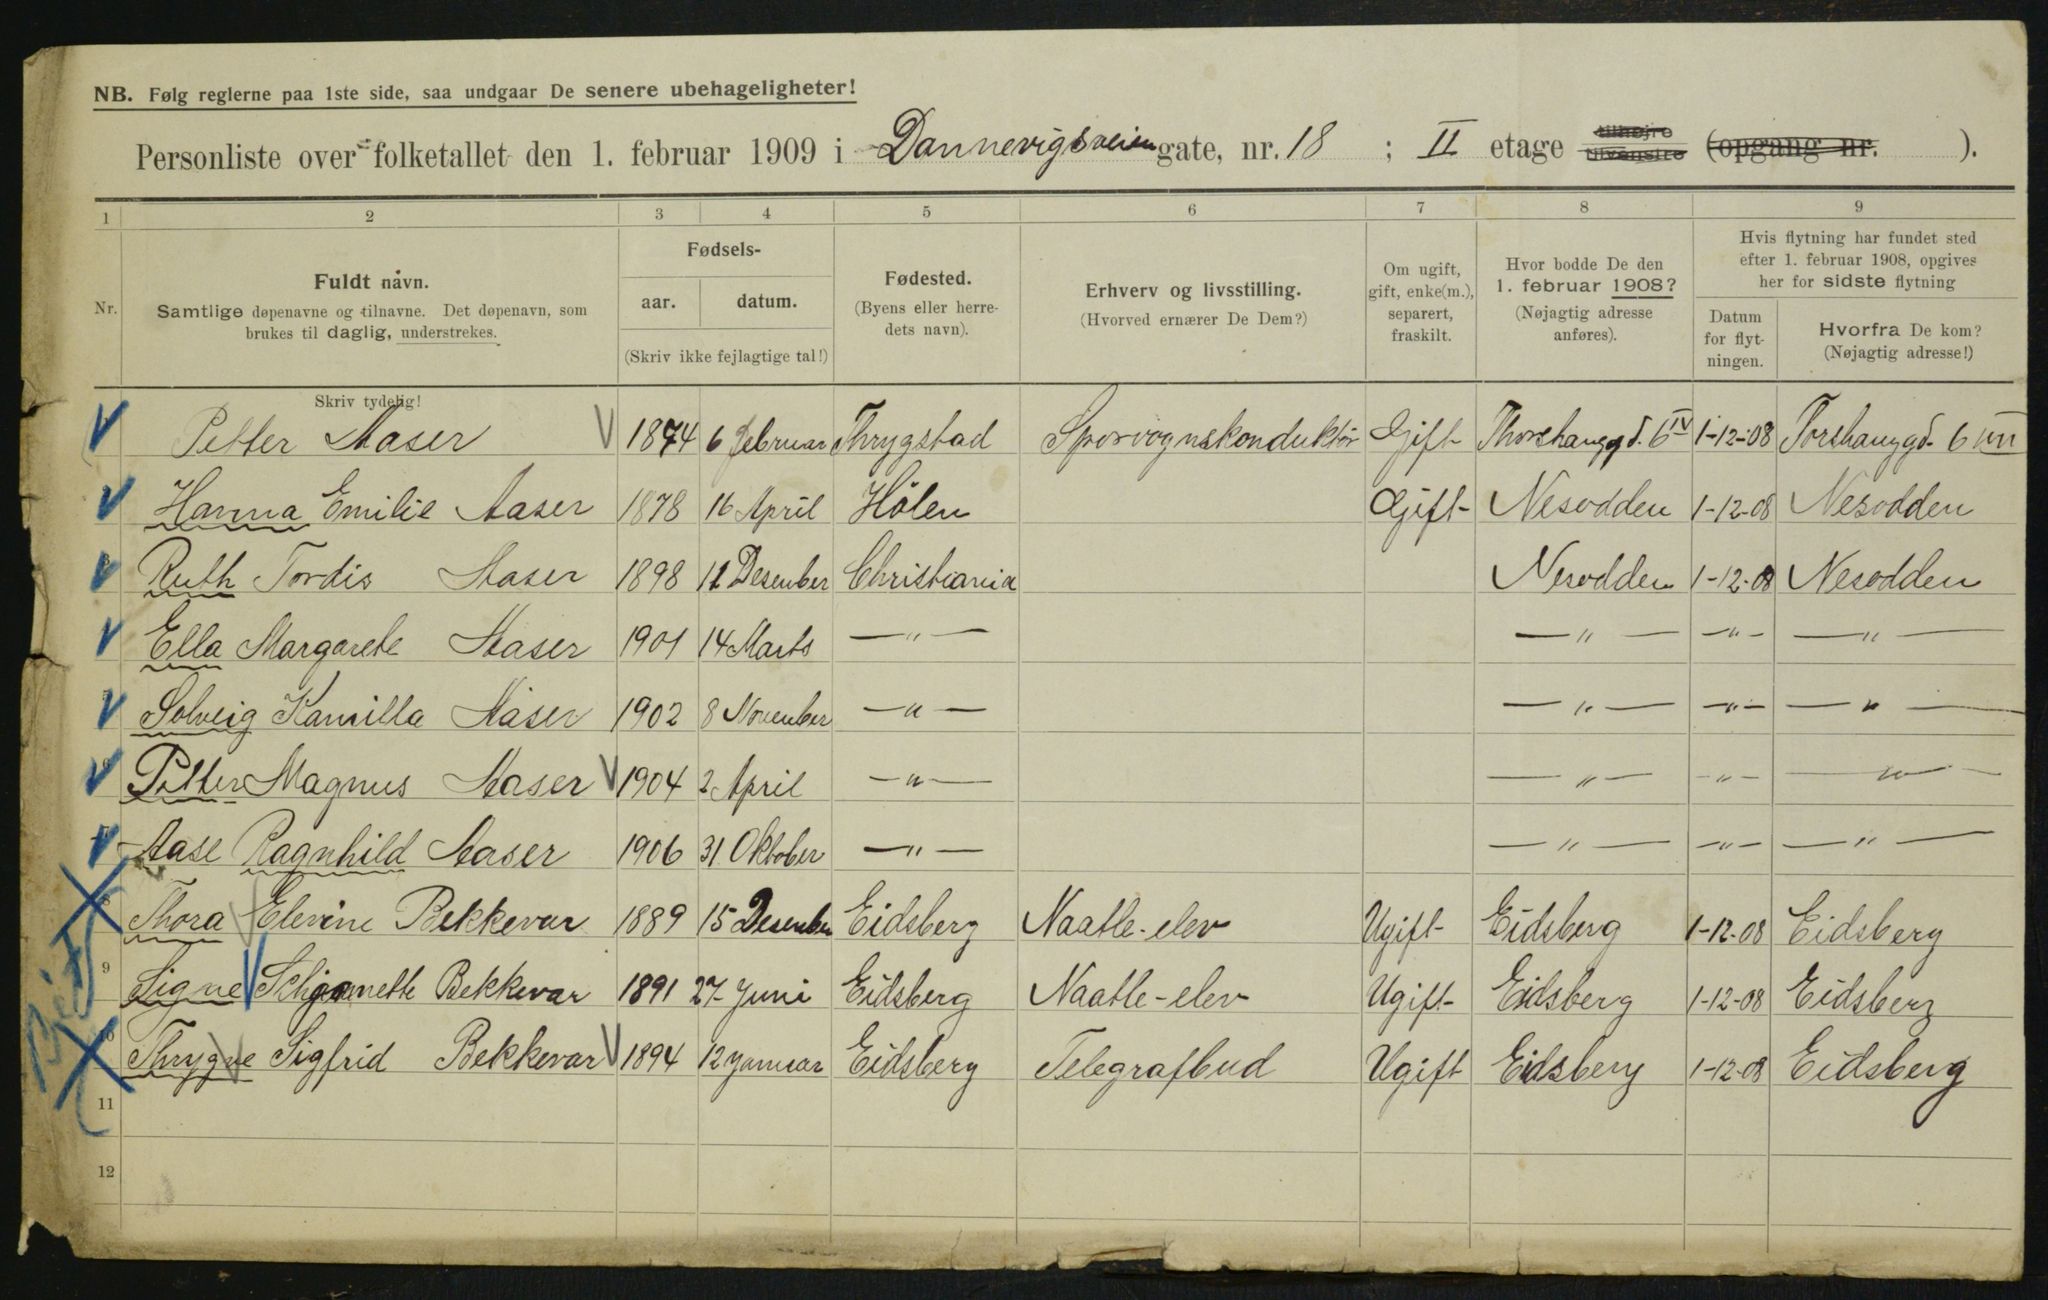 NB. Følg reglerne paa 1ste side, saa undgaar De senere ubehageligheter!
Personliste over folketallet den 1. februar 1909 i Dannevigsveien gate, nr. 18 ; II etage tilhøjre tilvenstre (opgang nr. ).
1 2 3 4 5 6 7 8 9
Nr.
Fuldt navn.
Samtlige døpenavne og tilnavne. Det døpenavn, som
brukes til daglig, understrekes.
Skriv tydelig!
Fødsels-
aar. datum.
(Skriv ikke fejlagtige tal!)
Fødested.
(Byens eller herre-
dets navn).
Erhverv og livsstilling.
(Hvorved ernærer De Dem?)
Om ugift,
gift, enke(m.),
separert,
fraskilt.
Hvor bodde De den
1. februar 1908?
(Nøjagtig adresse
anføres).
Hvis flytning har fundet sted
efter 1. februar 1908, opgives
her for sidste flytning
Datum
for flyt-
ningen.
Hvorfra De kom?
(Nøjagtig adresse!)
Petter Aaser 1874 6 februar Thrygstad Sporvognskonduktör Gift Thorshauggd. 6 IV 1-12-08 Torshauggd. 6
Hanna Emilie Aaser 1878 16 April Hölen Gift Nesodden 1-12-08 Nesodden
3 Ruth Tordis Aaser 1898 12 Desember Christiania Nesodden 1-12-08 Nesodden
Ella Margarete Aaser 1901 14 Marts —"— —"— —"— —"—
5 Solveig Kamilla Aaser 1902 8 November —"— —"— —"— —"—
6 Petter Magnus Aaser 1904 2 April —"— —"— —"— —"—
7 Aase Ragnhild Aaser 1906 31 Oktober —"— —"— —"— —"—
8 Thora Elevine Bekkevar 1889 15 Desember Eidsberg Naatle-elev Ugift Eidsberg 1-12-08 Eidsberg
9 Signe Bekkevar 1891 27 Juni Eidsberg Naatle-elev Ugift Eidsberg 1-12-08 Eidsberg
10 Thrygve Sigfrid Bekkevar 1894 12 Januar Eidsberg Telegrafbud Ugift Eidsberg 1-12-08 Eidsberg
11
12